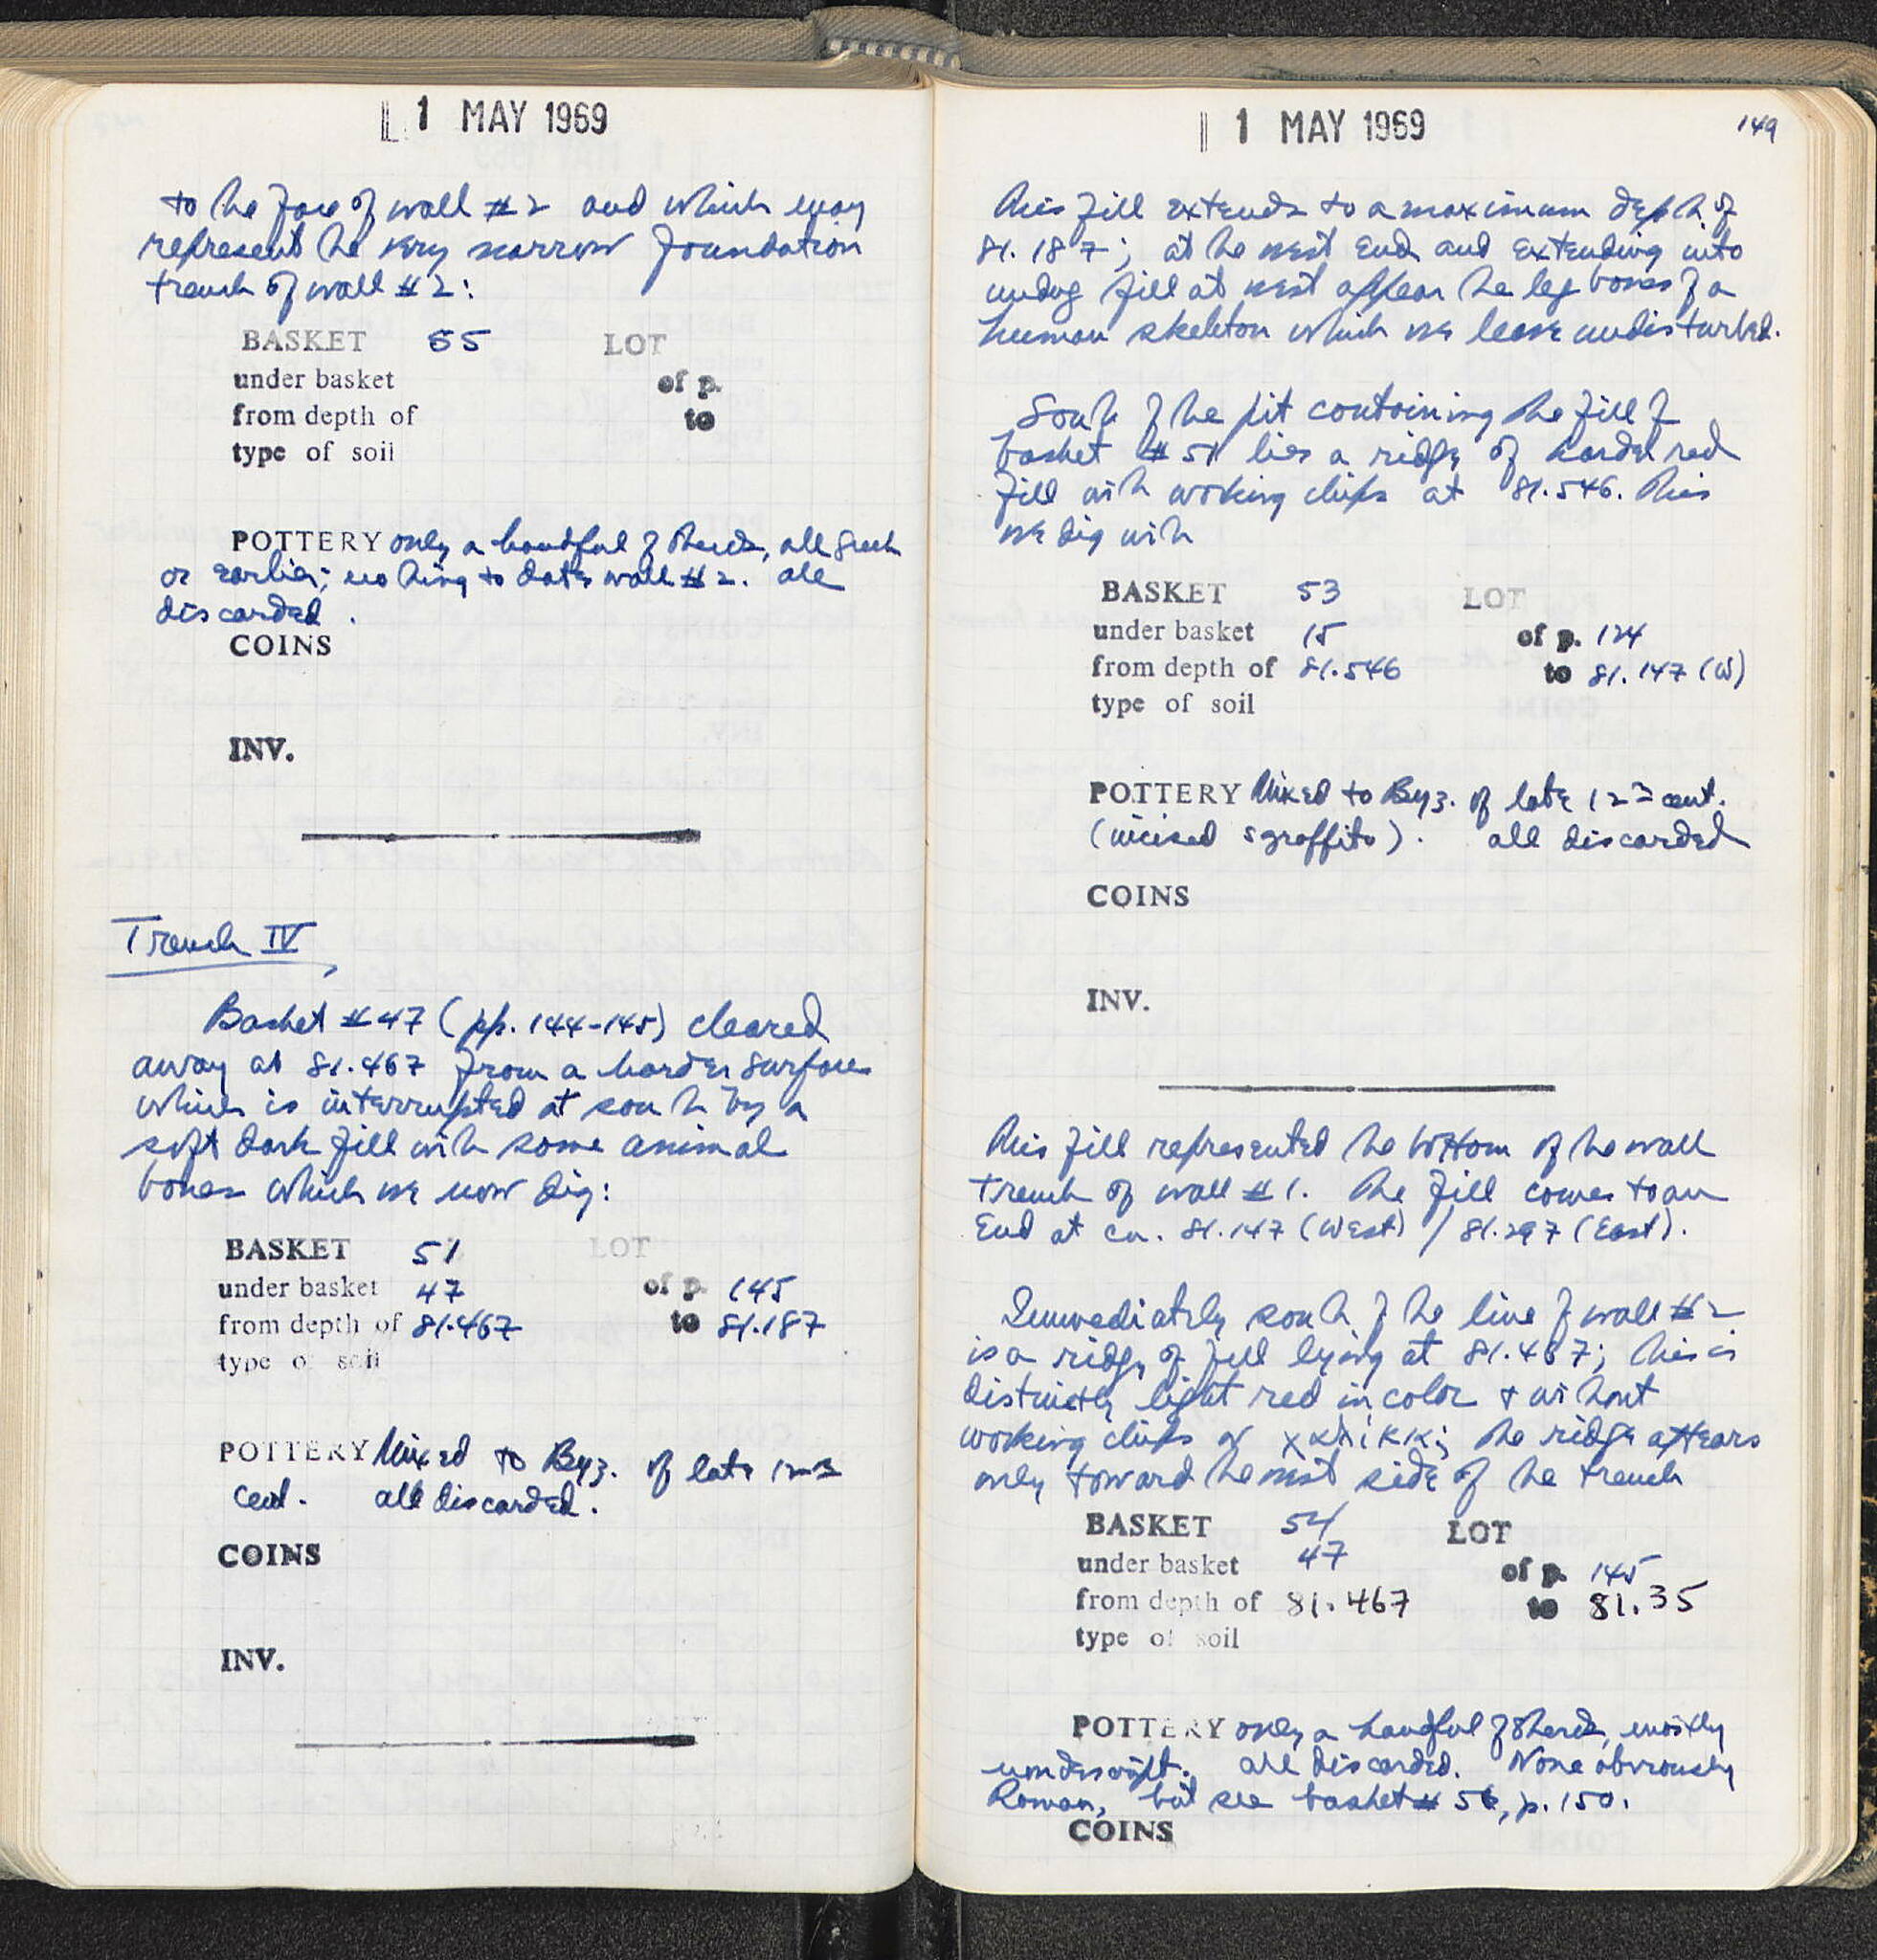 1 MAY 1969
to the face of wall #2 and which may
represent the very narrow foundation
trench of wall #2:
BASKET 55 LOT
under basket of p.
from depth of to
type of soil
POTTERY only a handful of sherds, all Greek
or earlier; nothing to date wall #2. all
discarded.
COINS
INV.
Trench IV
Basket #47 (pp. 144-145) cleared
away at 81.467 from a harder surface
which is interrupted at south by a
soft dark fill with some animal
bones which we now dig:
BASKET 51 LOT
under basket 47 of p. 145
from depth of 81.467 to 81.187
type of soil
POTTERY Mixed to Byz. of late 12nd
cent. all discarded.
COINS
INV.
1 MAY 1969
149
This fill extends to a maximum depth of
81.187; at the west end and extending into
undug fill at west appear the leg bones of a
human skeleton which we leave undisturbed.
South of the pit containing the fill of
basket #51 lies a ridge of harder red
fill with working chips at 81.546. This
we dig with
BASKET 53 LOT
under basket 15 of p. 124
from depth of 81.546 to 81.147 (W)
type of soil
POTTERY Mixed to Byz. of late 12nd cent.
(incised sgraffito). all discarded
COINS
INV.
This fill represented the bottom of the wall
trench of wall #1. The fill comes to an
end at ca. 81.147 (West) / 81.297 (East).
Immediately south of the line of wall #2
is a ridge of fill lying at 81.467; this is
distinctly light red in color + without
working chips or χαλίκι; the ridge appears
only toward the west side of the trench
BASKET 54 LOT
under basket 47 of p. 145
from depth of 81.467 to 81.35
type of soil
POTTERY only a handful of sherds, mostly
nondescript. all discarded. None obviously
Roman, but see basket #56, p. 150.
COINS